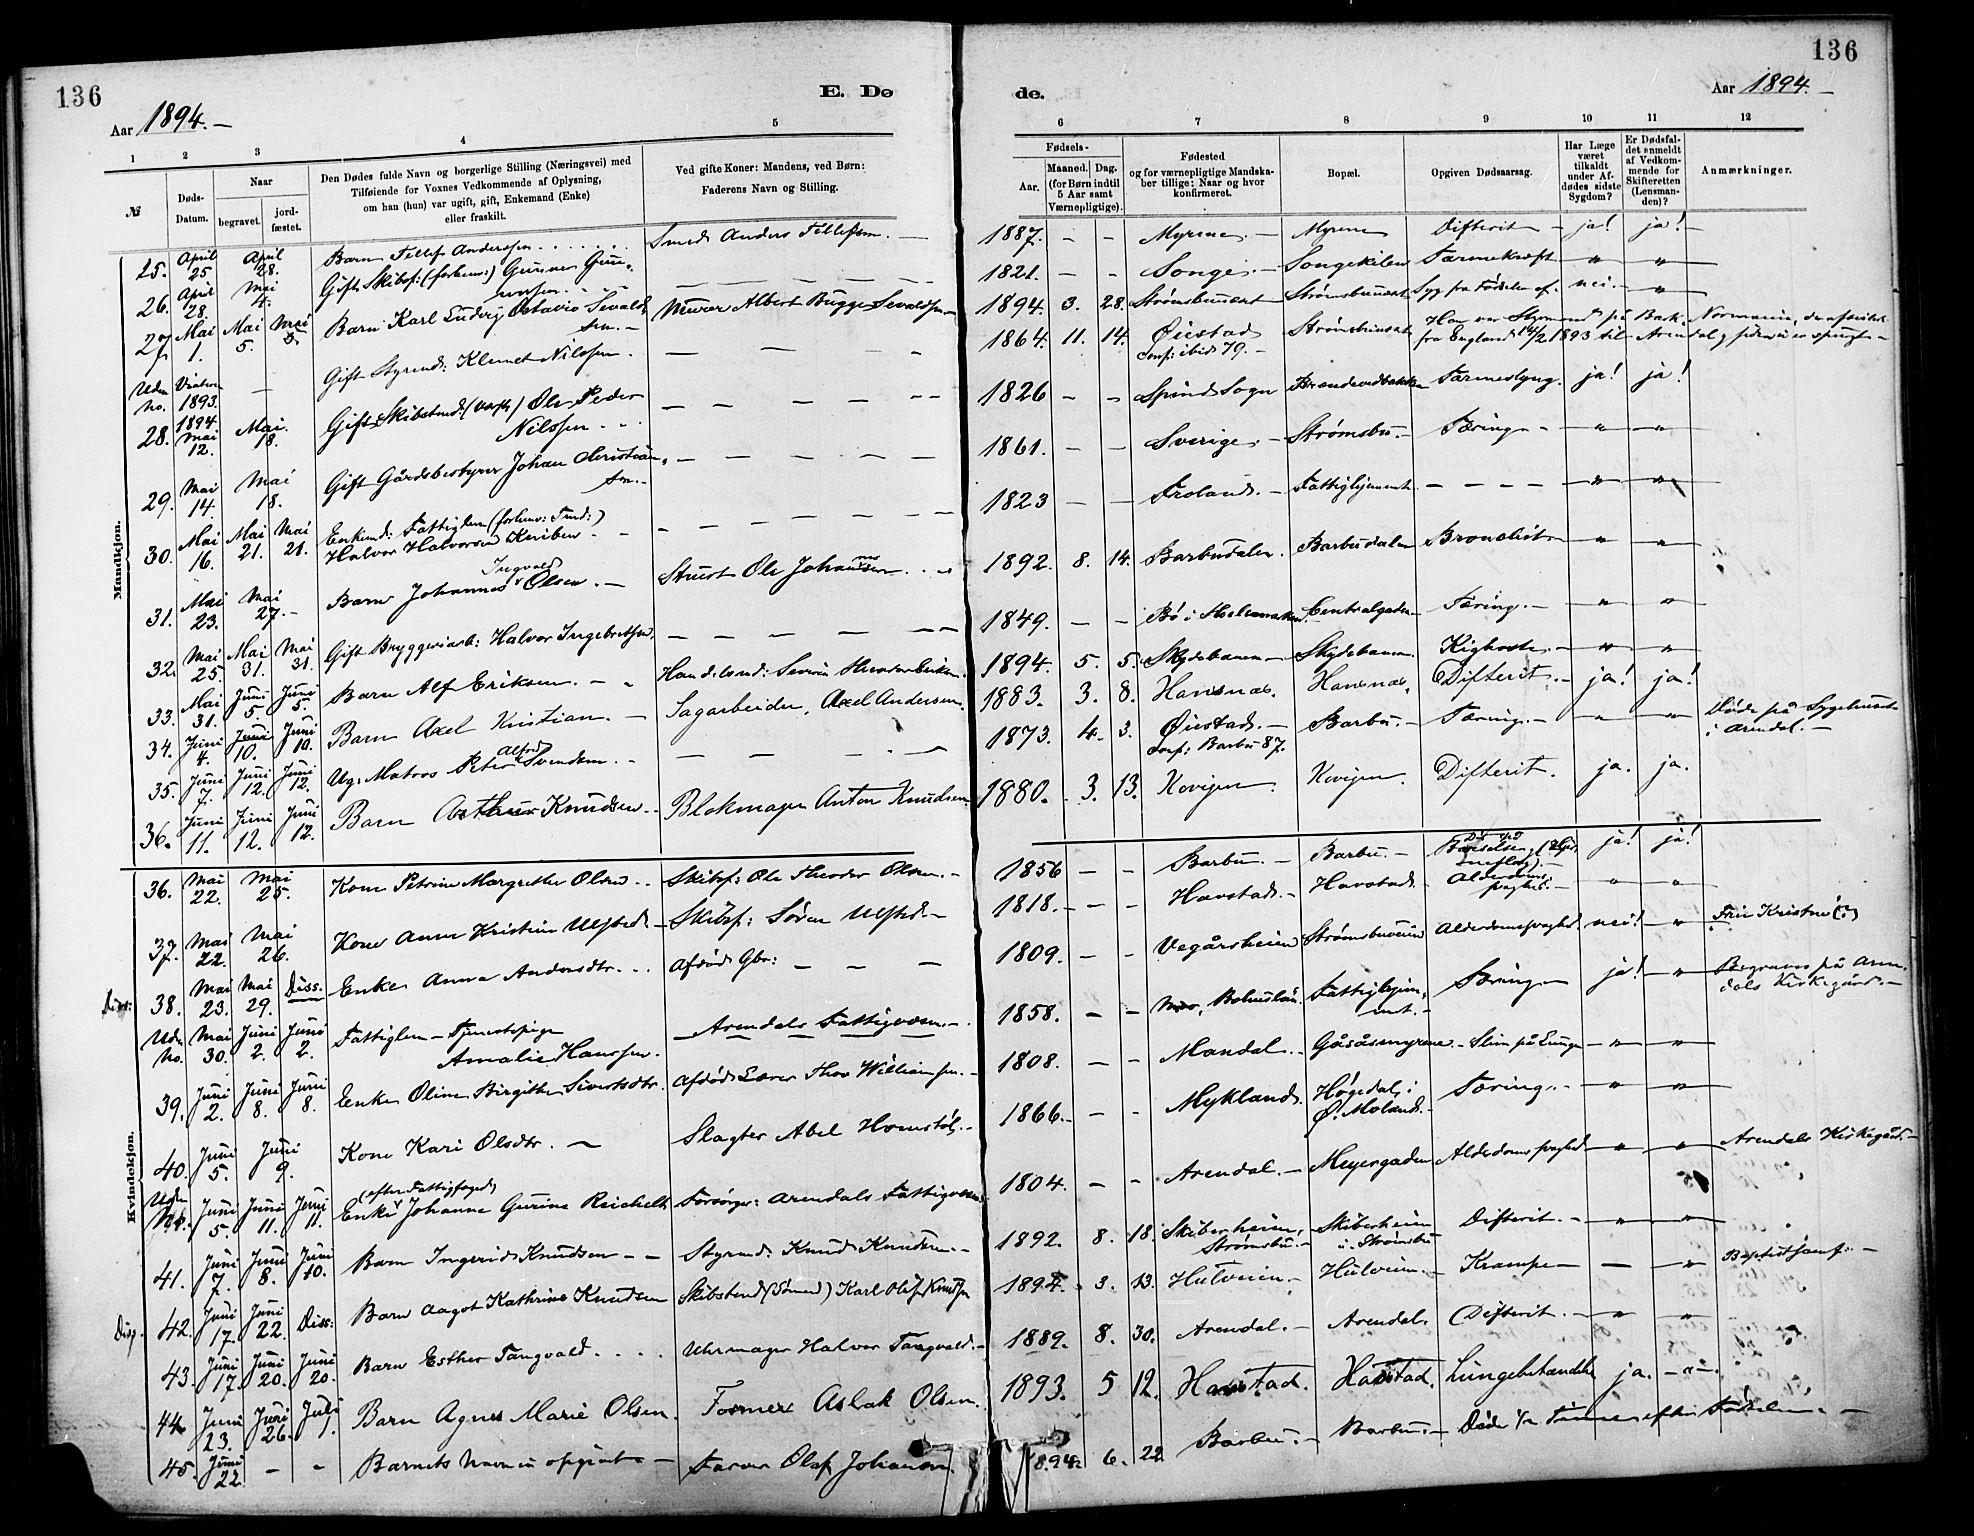 136
136
E. Dø
de.
Aar 1894.
Aar 1894.
1 2 3 4 5
6 7 8 9 10 11 12
№
Døds-Datum.
Naar
begravet.
jordfæstet.
Den Dødes fulde Navn og borgerlige Stilling (Næringsvei) med
Tilføiende for Voxnes Vedkommende af Oplysning,
om han (hun) var ugift, gift, Enkemand (Enke)
eller fraskilt.
Ved gifte Koner: Mandens, ved Børn:
Faderens Navn og Stilling.
Fødsels-
Aar.
Maaned. Dag.
(for Børn indtil
5 Aar samt
Værnepligtige).
Fødested
og for værnepligtige Mandska-
ber tillige: Naar og hvor
konfirmeret.
Bopæl.
Opgiven Dødsaarsag.
Har Læge
været
tilkaldt
under Af-
dødes sidste
Sygdom?
Er Dødsfal-
det anmeldt
af Vedkom-
mende for
Skifteretten
(Lensman-
den)?
Anmærkninger.
Mandkjøn.
25. April 25. April 28. Barn Tellef Anderssen Smed Anders Tellefsen. 1887. – – Myrene. Myrene Difterit ja! ja!
26. April 28. Mai 4. Gift Skibsf: (forhenv:) Gunner Gun-
1821. – – Songe. Songekilen Tarmekræft " "
27. Mai 1. Mai 5. Mai 5. Barn Karl Ludvig Octavio Sevalds-
sen. Murer Albert Bugge Sevaldsen 1894. 3. 28. Strømsbuneset Strømsbuneset Syg fra Fødselen af. nei. "
Uden No. 1893. – Gift Styrmd: Klemet Nilssen. 1864. 11. 14. Øiestad
conf: ibid 79. Han var Styrmand på Bark. Normania, der afseilet
fra England 14/2 1893 til Arendal
28. 1894 Mai 12. Mai 18. Gift Skibstmd: Ole Peder
Nilssen 1826 – – Spind Sogn ja! ja!
29. Mai 14. Mai 18. Gift Gårdsbestyrer Johan Christian-
sen. 1861. – – Sverige. Strømsbu. Tæring. " "
30. Mai 16. Mai 21. Mai 21. Enkemd: Fattiglem (forhenv: Tmd:)
Halvor Halvorsen 1823 – – Froland. Fattighjemmet – – – – " "
31. Mai 23. Mai 27. Barn Johannes Ingvald Olsen. Stuert Ole Johannessen 1892. 8. 14. Barbudalen. Barbudalen Bronchit " "
32. Mai 25. Mai 31. Mai 31. Gift Bryggeriarb: Halvor Ingebretsen. 1849. – – Bø i Thelemarken Centralgaden Tæring. " "
33. Mai 31. Juni 5. Juni 5. Barn Alf Eriksen. Handelsmd: Severin 1894. 5. 5. Skydebanen Skydebanen. Kighoste. " "
34. Juni 4. Juni 10. Juni 10. Barn Axel Kristian. Sagarbeider, Axel Andersen. 1883. 3. 8. Hansnæs. Hansnæs. Difterit. ja! ja!
35. Juni 7. Juni 12. Juni 12. Ug: Matros Peter Alfred Svendsen. 1873. 4. 3. Øiestad.
conf: Barbu 87. Barbu. Tæring. " " Døde på Sygehuset
i Arendal.
36. Juni 11. Juni 12. Juni 12. Barn Arthur Knudsen Blokmager Anton Knudsen 1880. 3. 13. Kovigen. Kovigen. Difterit. ja. ja.
Kvindekjøn.
36. Mai 22. Mai 25. Kone Petrine Margrethe Olsen Skibsf: Ole Theodor Olsen. 1856 – – Barbu. Barbu. ja! ja!
37. Mai 22. Mai 26. Kone Anne Kristine Ulfsted. Skibsf: Søren Ulfsted. 1818. – – Havstad. Havstad. Alderdoms-
svaghed. " "
Diss: 38. Mai 23. Mai 29. Diss. Enke Anna Andersdtr. Afdøde Gbr: 1809. – – Vegårsheien Alderdomssvaghed. nei! " Frie Kristne (?)
Uden No. Mai 30. Juni 2. Juni 2. Fattiglem – Tjenestepige
Amalie Hanssen. Arendals Fattigvæsen. 1858. – – Bohuslän. Fattighjem-
met. Tæring ja! " Begraves på Aren-
dals Kirkegård.
39. Juni 2. Juni 8. Juni 8. Enke Oline Birgithe Sivertsdtr. Afdøde Lærer Thor Williamsen. 1808. – – Mandal. Gåsåsmyrene. Slim på Lunge " "
40. Juni 5. Juni 9. Kone Kari Olsdtr. Slagter Abel Homstøl. 1866. – – Mykland. Høgedal i
Ø. Moland. Tæring. " "
Uden No. Juni 5. Juni 11. Juni 11. (efter Fattigfoged)
Enke Johanne Gurine Reichelt Forsørges: Arendals Fattigvæsen 1804. – – Arendal. Meyergaden Alderdomssvaghed " " Arendals Kirkegård.
41. Juni 7. Juni 8. Juni 10. Barn Ingerid Knudsen Styrmd: Knud Knudsen. 1892. 8. 18. Skiberheien,
Strømsbu. Skiberheien
i Strømsbu Difterit. – "
Diss. 42. Juni 17. Juni 22. Diss: Barn Aagot Kathrine Knudsen Skibstmd (Sømd) Karl Oluf Knudsen 1894. 3. 13. Hulveien. Hulveien. Krampe – " Baptistsamf.
43. Juni 17. Juni 20. Juni 20. Barn Esther Tangvald. Uhrmager Halvor Tangvald. 1889. 8. 30. Arendal. Arendal. Difterit. " "
44. Juni 23. Juni 26. Juli 1. Barn Agnes Marie Olsen. Former Aslak Olsen. 1893. 5 12. Havstad. Havstad. Lungebetændelse ja. "
45. Juni 22. – " Barnets Navn ei opgivet Farver Olaf Johansen. 1894. 6. 22 Barbu. Barbu. Døde 1/2 Time efter Fødselen.